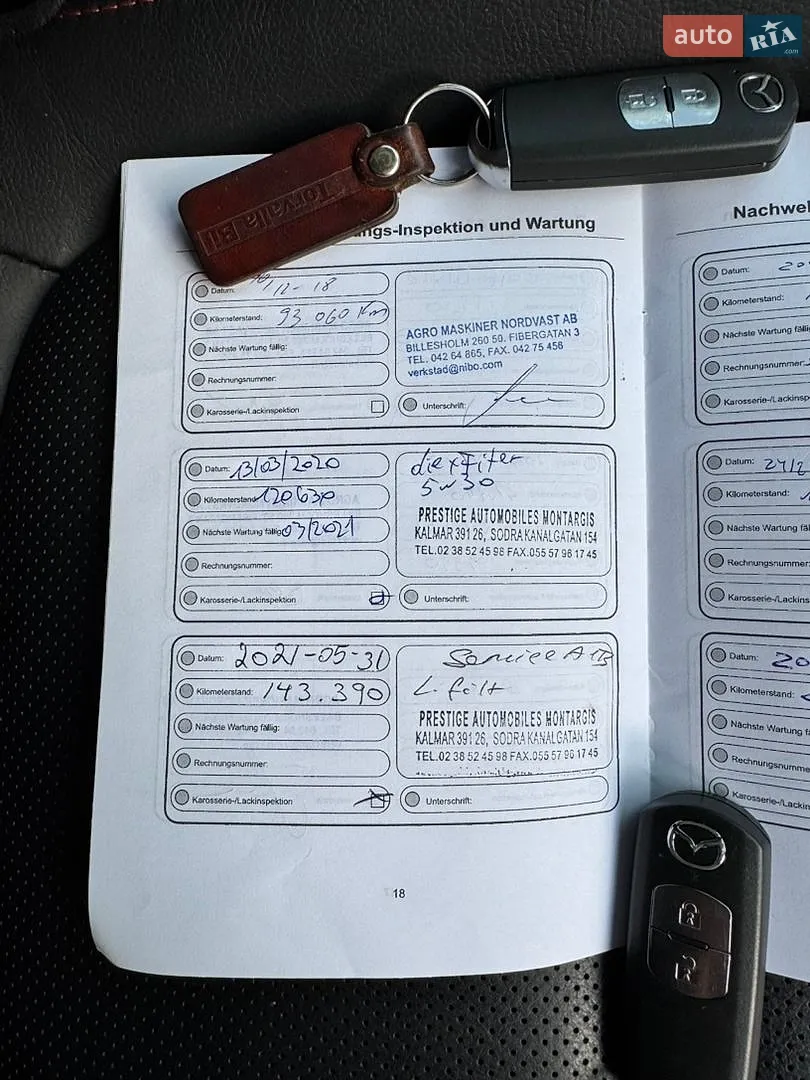 auto RIA.com
Torvalla Bil
ngs-Inspektion und Wartung
Datum: 12-18
Kilometerstand: 93 060 Km
Nächste Wartung fällig:
Rechnungsnummer:
Karosserie-/Lackinspektion
AGRO MASKINER NORDVAST AB
BILLESHOLM 260 50. FIBERGATAN 3
TEL. 042 64 865, FAX. 042 75 456
verkstad@nibo.com
Unterschrift:
Datum: 13/03/2020
Kilometerstand: 120630
Nächste Wartung fällig: 03/2021
Rechnungsnummer:
Karosserie-/Lackinspektion
5w30
PRESTIGE AUTOMOBILES MONTARGIS
KALMAR 391 26, SODRA KANALGATAN 154
TEL.02 38 52 45 98 FAX.055 57 96 17 45
Unterschrift:
Datum: 2021-05-31
Kilometerstand: 143.390
Nächste Wartung fällig:
Rechnungsnummer:
Karosserie-/Lackinspektion
PRESTIGE AUTOMOBILES MONTARGIS
KALMAR 391 26, SODRA KANALGATAN 154
TEL.02 38 52 45 98 FAX.055 57 96 17 45
Unterschrift:
18
Nachwei
Datum: 20
Kilometerstand:
Nächste Wartung fäl
Rechnungsnummer:
Karosserie-/Lackins
Datum: 24/2
Kilometerstand:
Nächste Wartung fäl
Rechnungsnummer:
Karosserie-/Lackins
Datum: 20
Kilometerstand:
Nächste Wartung fä
Rechnungsnumme
Karosserie-/Lackin